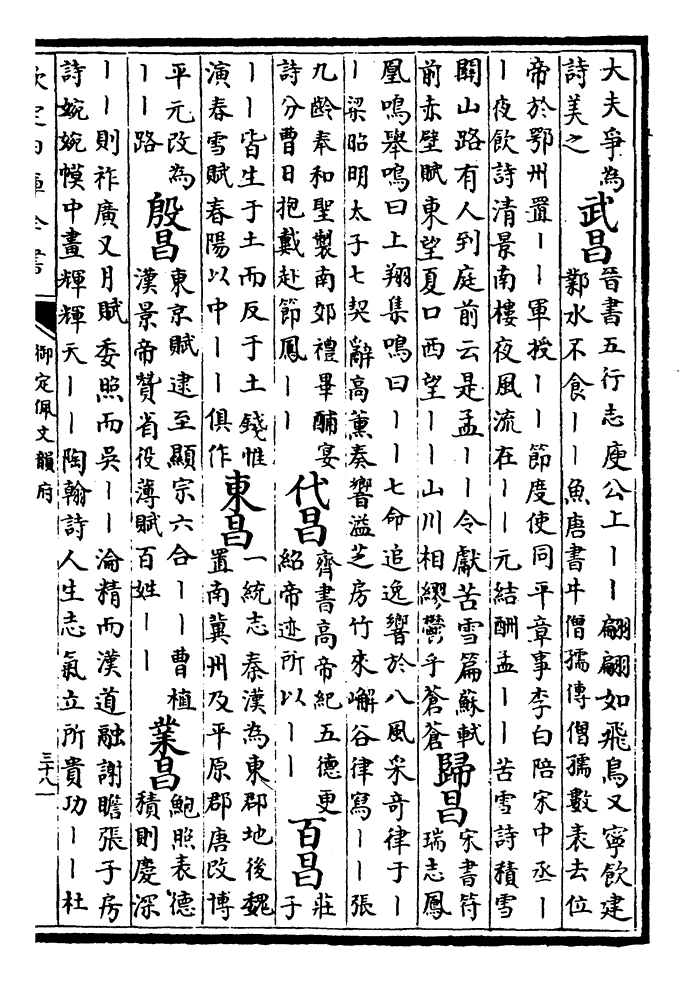 大夫爭為
詩美之
武昌
晉書五行志庾公上丨丨翩翩如飛鳥又寧飲建
鄴水不食丨丨魚唐書牛僧孺傳僧孺數表去位
帝於鄂州置丨丨軍授丨丨節度使同平章事李白陪宋中丞丨
丨夜飲詩清景南樓夜風流在丨丨元結酬孟丨丨苦雪詩積雪
閉山路有人到庭前云是孟丨丨令獻苦雪篇蘇軾
前赤壁賦東望夏口西望丨丨山川相繆鬱乎蒼蒼
歸昌
宋書符
瑞志鳳
凰鳴舉鳴曰上翔集鳴曰丨丨丨七命追逸響於八風采奇律于丨
丨梁昭明太子七契辭高薰奏響溢芝房竹來嶰谷律寫丨丨張
九齡奉和聖製南郊禮畢酺宴
詩分曹日抱戴赴節鳳丨丨
代昌
齊書高帝紀五德更
紹帝迹所以丨丨
百昌
莊
子
丨丨皆生于土而反于土錢惟
演春雪賦春陽以中丨丨俱作
東昌
一統志秦漢為東郡地後魏
置南冀州及平原郡唐改博
平元改為
丨丨路
殷昌
東京賦逮至顯宗六合丨丨曹植
漢景帝贊省役薄賦百姓丨丨
業昌
鮑照表德
積則慶深
丨丨則祚廣又月賦委照而吳丨丨淪精而漢道融謝瞻張子房
詩婉婉幙中畫輝輝天丨丨陶翰詩人生志氣立所貴功丨丨杜
欽定四庫全書
御定佩文韻府
三十八